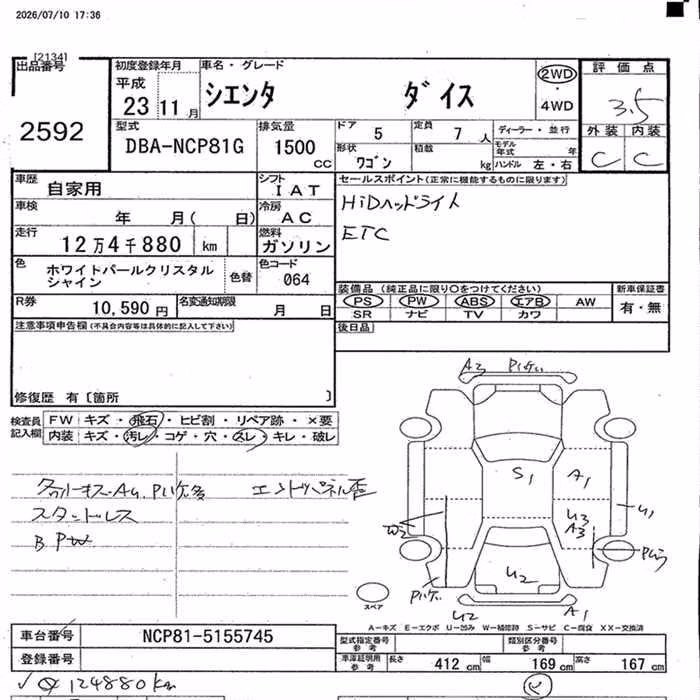 2026/07/10 17:36
[2134]
出品番号
2592
初度登録年月
平成
23 11 月
車名・グレード
シエンタ ダイス
2WD
・
4WD
評価点
3.5
外装 内装
C C
型式
DBA-NCP81G
排気量
1500 cc
ドア 5
定員 7 人
形状 ワゴン
積載 kg
ディーラー・並行
モデル年式 年
ハンドル 左・右
車歴 自家用
シフト IAT
車検 年 月( 日)
冷房 AC
走行 12万4千880 km
燃料 ガソリン
色 ホワイトパールクリスタルシャイン
色替
色コード 064
R券 10,590 円
名変通知期限 月 日
セールスポイント(正常に機能するものに限ります)
HiDヘッドライト
ETC
装備品(純正品に限り○をつけてください)
PS PW ABS エアB AW
SR ナビ TV カワ
新車保証書
有・無
後日品
注意事項申告欄(不具合内容等は具体的に記入して下さい)
修復歴 有〔箇所 〕
検査員記入欄
FW キズ・飛石・ヒビ割・リペア跡・×要
内装 キズ・汚レ・コゲ・穴・スレ・キレ・破レ
エンドパネル歪
スタッドレス
B PW
A3
S1
A1
U3
A3
U1
W2
U2
U2
A1
スペア
A－キズ E－エクボ U－凹み W－補修跡 S－サビ C－腐食 XX－交換済
車台番号 NCP81-5155745
登録番号
型式指定番号 参考
類別区分番号 参考
車庫証明用 参考
長さ 412 cm
幅 169 cm
高さ 167 cm
124880km